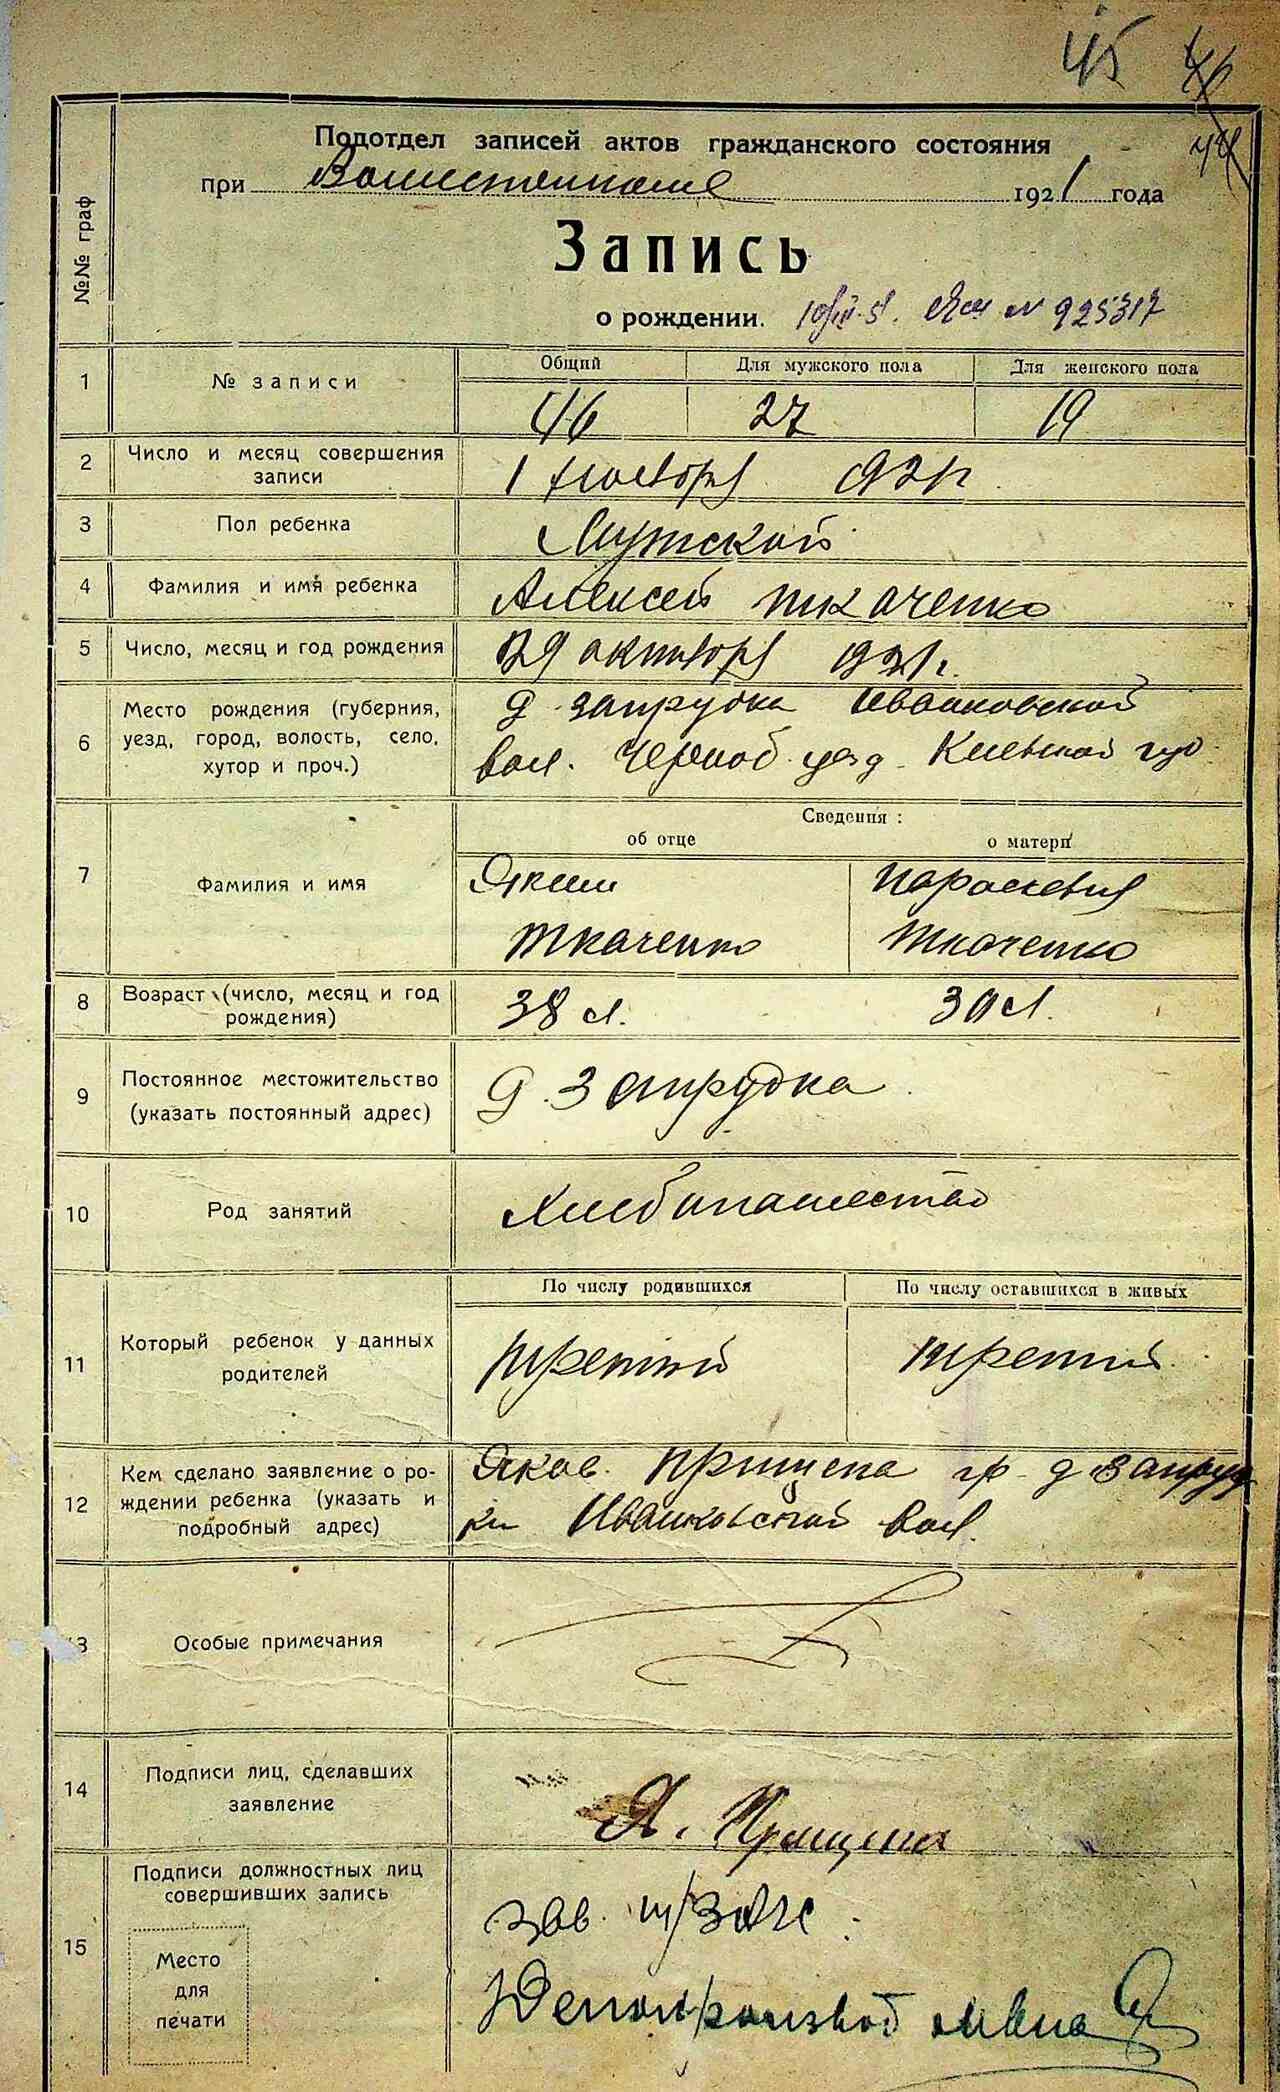 45
44
Подотдел записей актов гражданского состояния
при 1921 года
№№ граф
Запись
о рождении. № 925317
1 № записи Общий Для мужского пола Для женского пола
46 27 19
2 Число и месяц совершения записи 1 ноября 921 г
3 Пол ребенка Мужской
4 Фамилия и имя ребенка Алексей Ткаченко
5 Число, месяц и год рождения 29 октября 1921 г.
6 Место рождения (губерния, уезд, город, волость, село, хутор и проч.) д. Запрудка Иванковской
вол. Черноб. уезд. Киевской губ.
Сведения:
об отце о матери
7 Фамилия и имя Яким Параскевия
Ткаченко Ткаченко
8 Возраст (число, месяц и год рождения) 38 л. 30 л.
9 Постоянное местожительство (указать постоянный адрес) д. Запрудка
10 Род занятий Хлебопашество
По числу родившихся По числу оставшихся в живых
11 Который ребенок у данных родителей третий третий
12 Кем сделано заявление о рождении ребенка (указать и подробный адрес) Яков Прищепа гр. д. Запруд
ки Иванковской вол.
13 Особые примечания
14 Подписи лиц, сделавших заявление Я. Прищепа
15 Подписи должностных лиц совершивших запись зав. п/загс
Место
для
печати
Делопроизвод